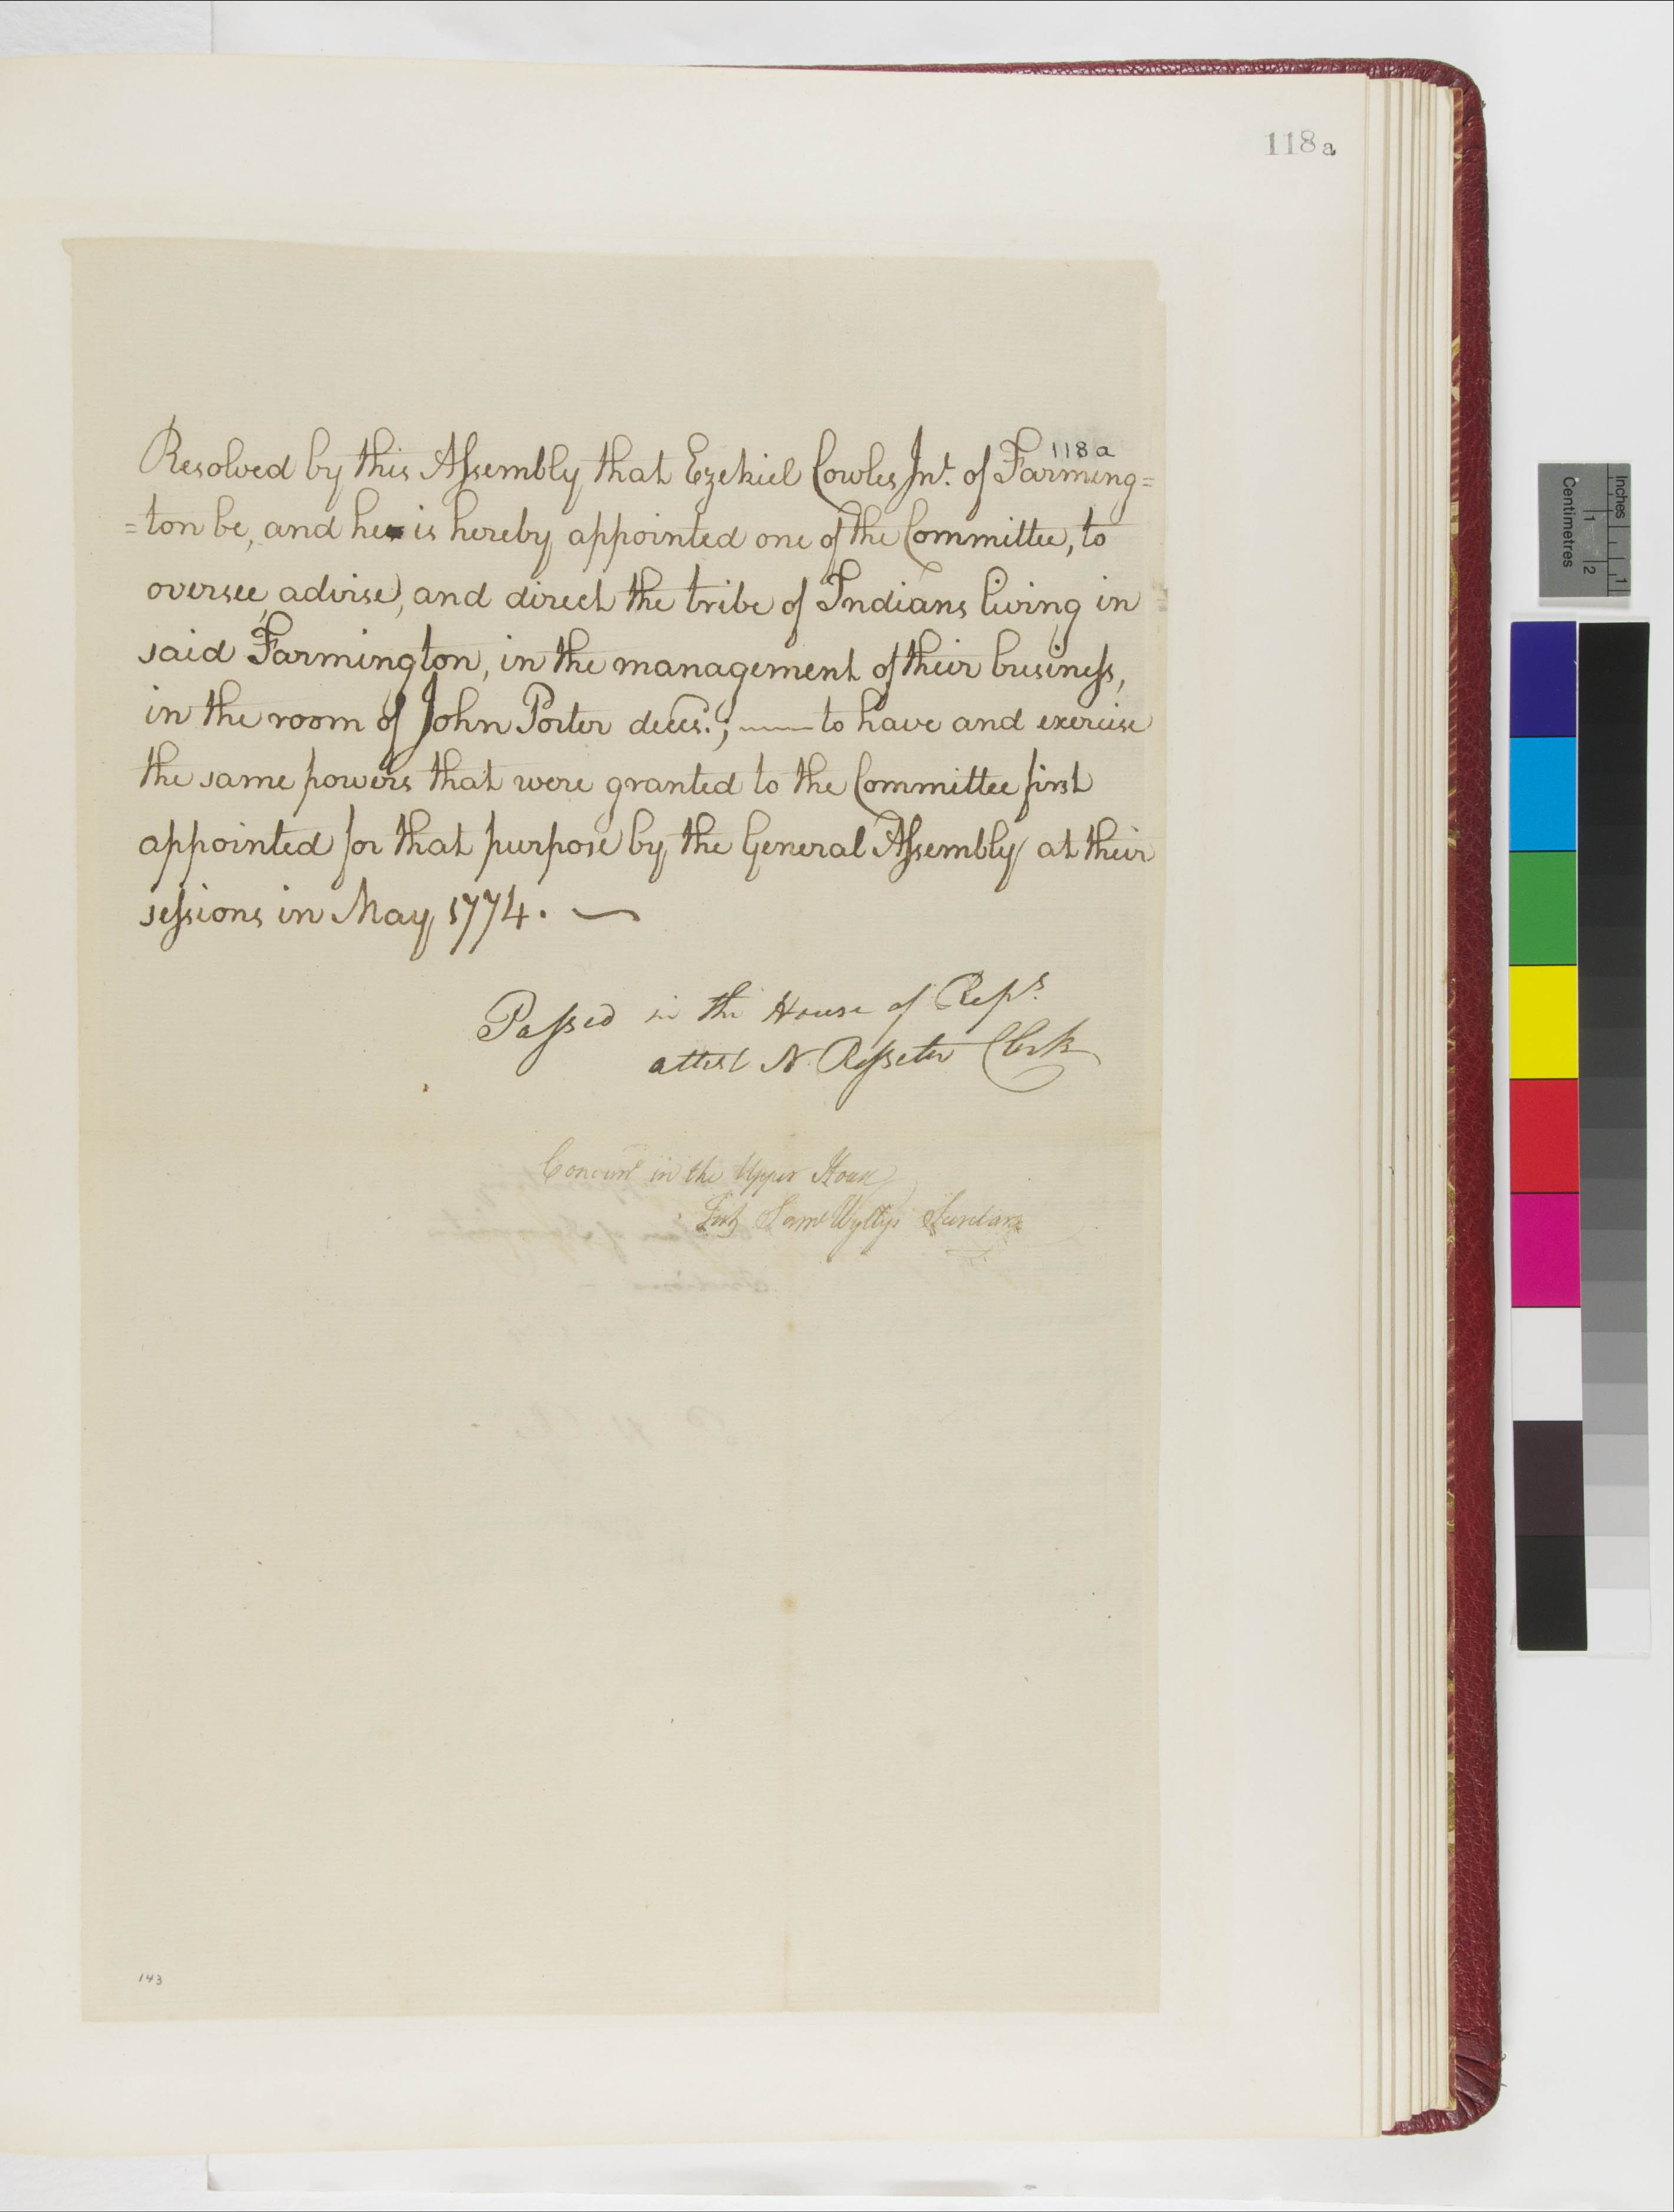 118a
118a
Resolved by this Assembly that Ezekiel Cowles Jnr. of Farming=
=ton be, and he is hereby appointed one of the Committee, to
oversee, advise, and direct the tribe of Indians living in
said Farmington, in the management of their business,
in the room of John Porter deces.; — to have and exercise
the same powers that were granted to the Committee first
appointed for that purpose by the General Assembly at their
sessions in May 1774. —
Passed in the House of Reps
attest N. Rosseter Clerk
Concurd in the Upper House
Saml Wyllys
143
Inches
1
1
2
Centimetres